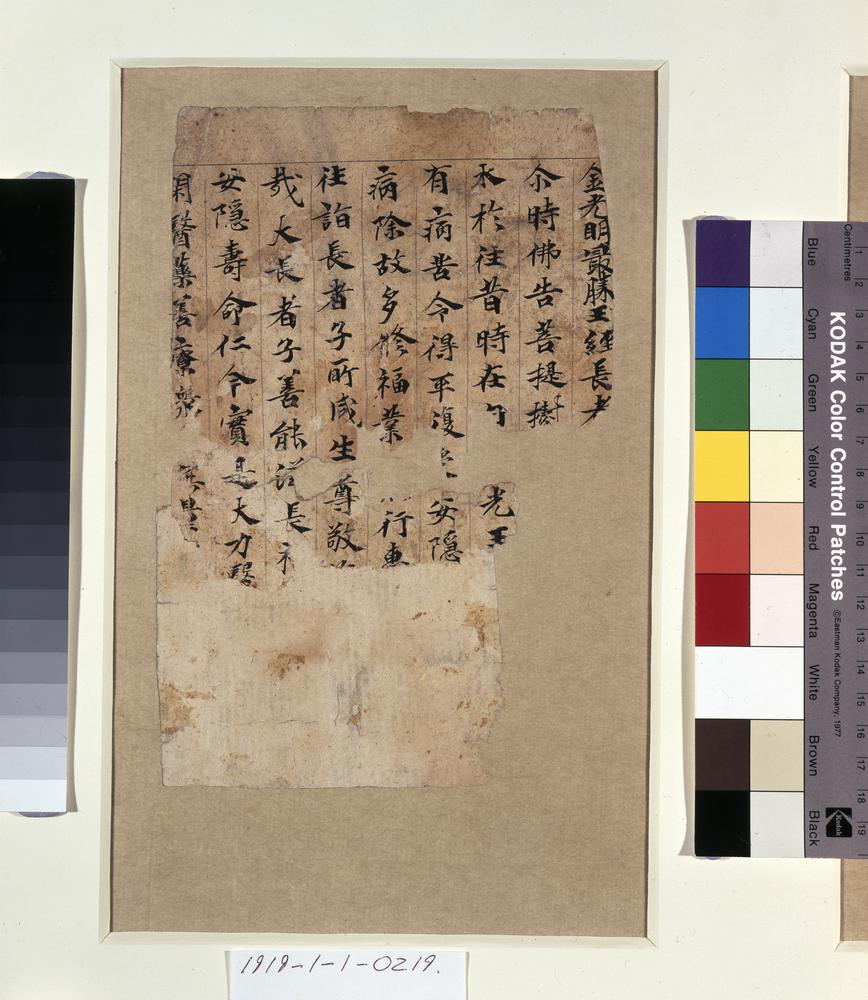 金光明最勝王經長者
尒時佛告菩提樹
來於往昔時在
光王
有病苦令得平復
安隱
病除故多修福業
行惠
往詣長者子所咸生尊敬
㢤大長者子善能
長
安隱壽命仁今實是大力醫
閑醫藥善療衆
Blue Cyan Green Yellow Red Magenta White Brown Black
KODAK Color Control Patches
©Eastman Kodak Company, 1977
Kodak
Centimetres
1 2 3 4 5 6 7 8 9 10 11 12 13 14 15 16 17 18 19
1919-1-1-0219.